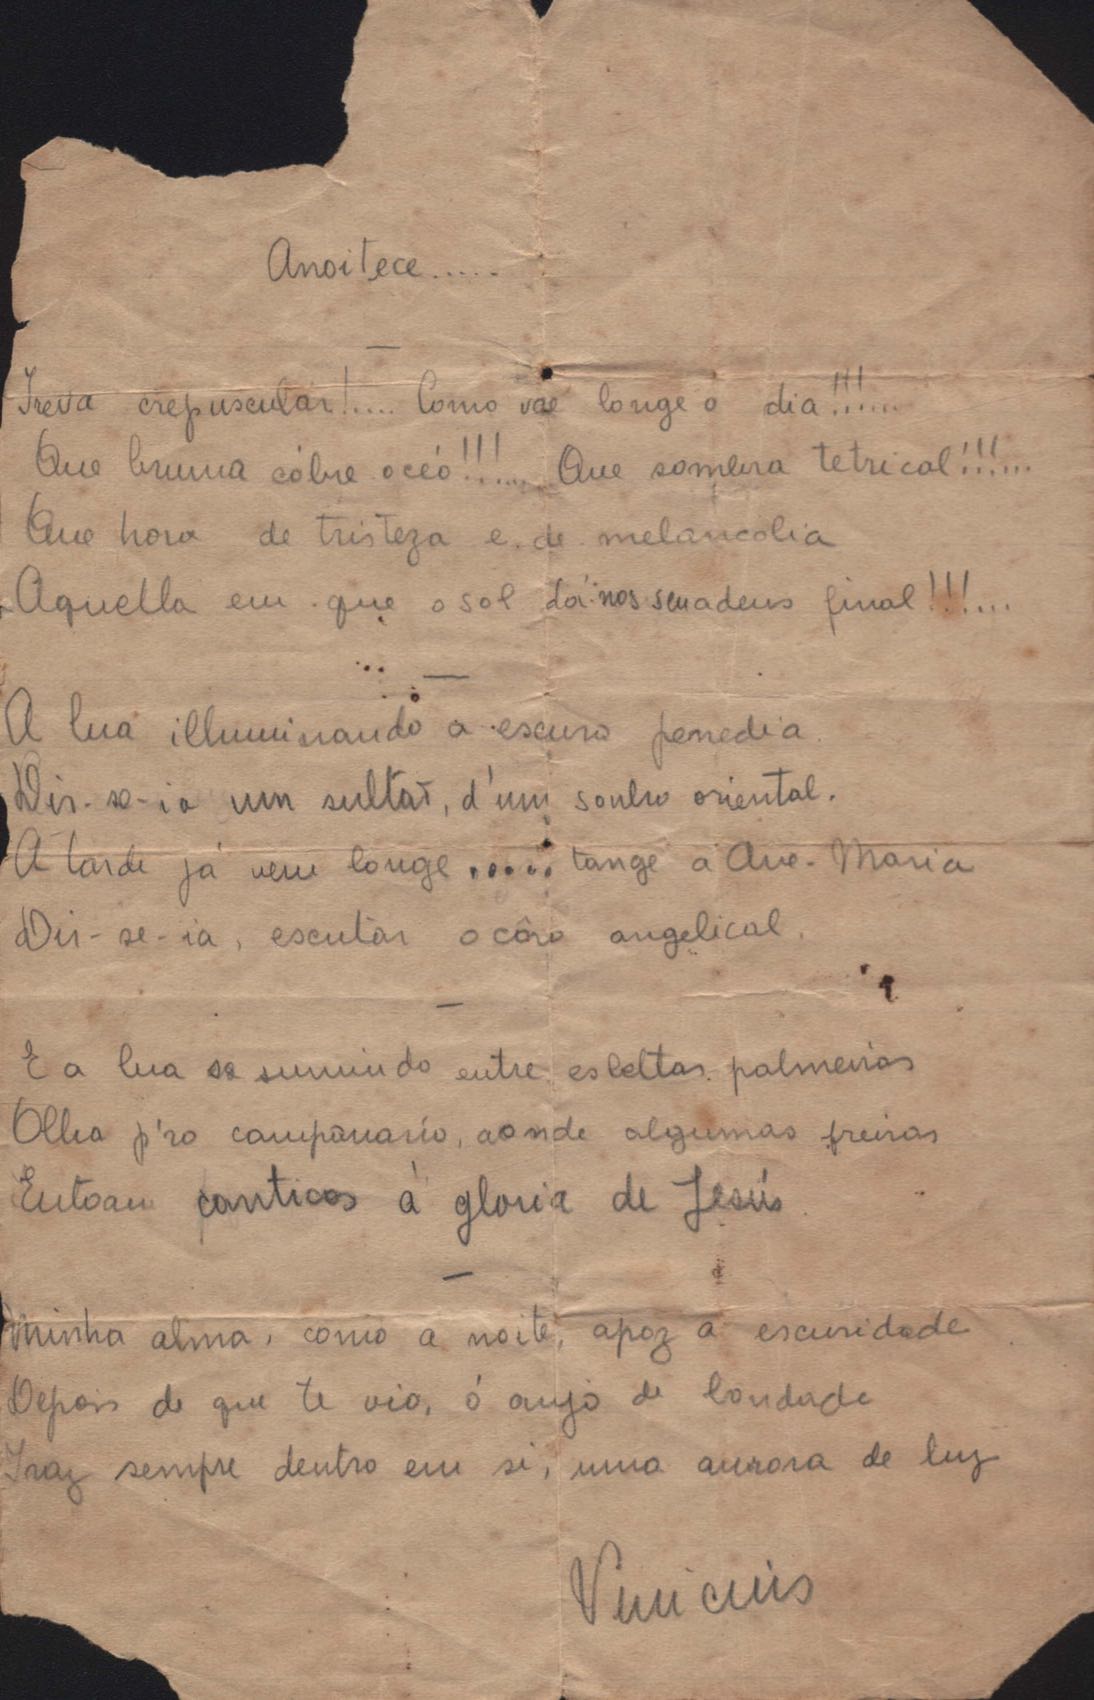 Anoitece.....
Treva crepuscular!.... Como vae longe o dia!!!.....
Que bruma cóbre o céo!!!.... Que sombra tetrica!!!!...
Que hora de tristeza e de melancolia
Aquella em que o sol dá-nos seu adeus final!!!...
A lua illuminando a escura penedia.
Dir-se-ia um sultão, d'um sonho oriental.
A tarde já vem longe..... tange a Ave-Maria
Dir-se-ia, escutar o côro angelical.
E a lua se sumindo entre esbeltas palmeiras
Olha p'ro campanario, aonde algumas freiras
Entoam canticos á gloria de Jesús
Minha alma, como a noite, apoz a escuridade
Depois de que te vio, ó anjo de bondade
Traz sempre dentro em si, uma aurora de luz
Vinicius